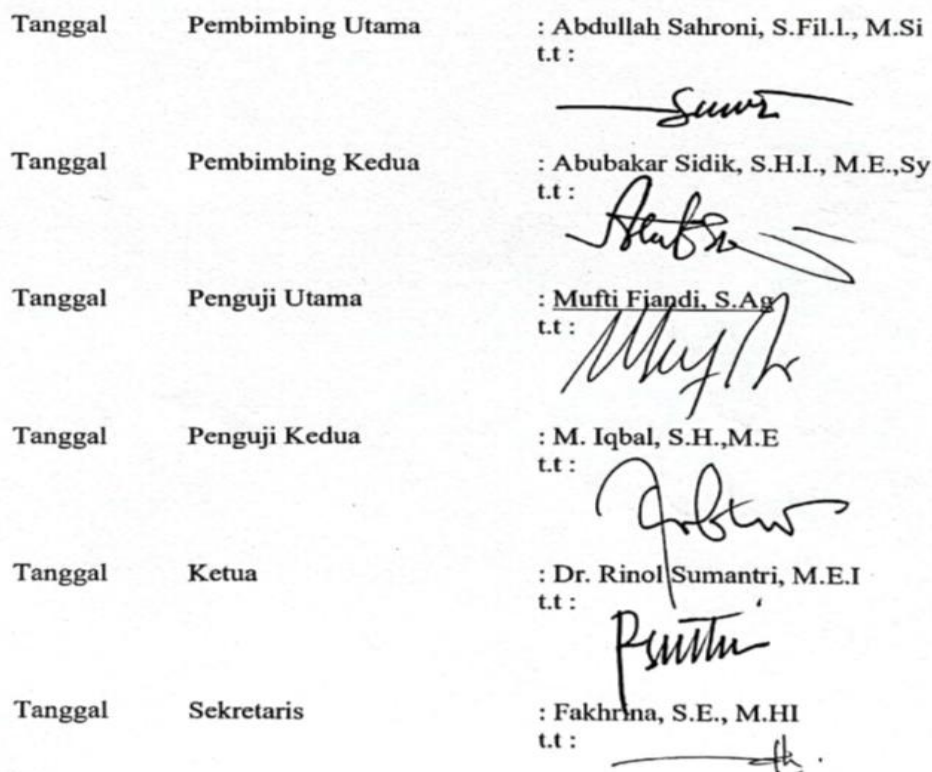 Tanggal Pembimbing Utama : Abdullah Sahroni, S.Fil.l., M.Si
t.t :
Tanggal Pembimbing Kedua : Abubakar Sidik, S.H.I., M.E.,Sy
t.t :
Tanggal Penguji Utama : Mufti Fiandi, S.Ag
t.t :
Tanggal Penguji Kedua : M. Iqbal, S.H.,M.E
t.t :
Tanggal Ketua : Dr. Rinol Sumantri, M.E.I
t.t :
Tanggal Sekretaris : Fakhrina, S.E., M.HI
t.t :